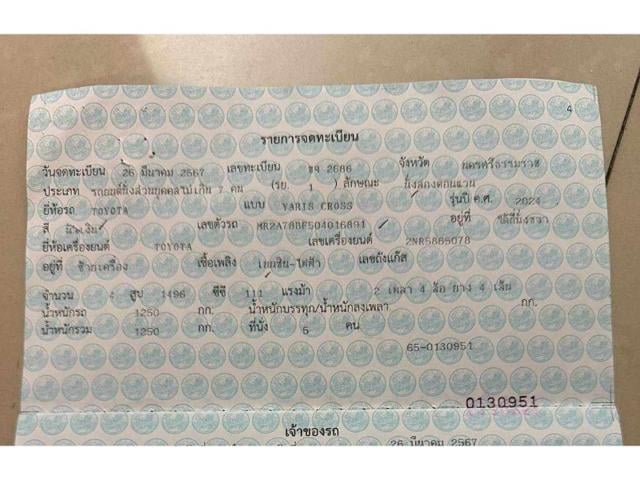 4
รายการจดทะเบียน
วันจดทะเบียน 26 มีนาคม 2567 เลขทะเบียน ขจ 2686 จังหวัด นครศรีธรรมราช
ประเภท รถยนต์นั่งส่วนบุคคลไม่เกิน 7 คน (รย. 1 ) ลักษณะ นั่งสองตอนแวน
ยี่ห้อรถ TOYOTA แบบ YARIS CROSS รุ่นปี ค.ศ. 2024
สี น้ำเงิน เลขตัวรถ MR2A78BF504016891 อยู่ที่ ใต้ที่นั่งขวา
ยี่ห้อเครื่องยนต์ TOYOTA เลขเครื่องยนต์ 2NR5865078
อยู่ที่ ซ้ายเครื่อง เชื้อเพลิง เบนซิน-ไฟฟ้า เลขถังแก๊ส
จำนวน 4 สูบ 1496 ซีซี 111 แรงม้า 2 เพลา 4 ล้อ ยาง 4 เส้น
น้ำหนักรถ 1250 กก. น้ำหนักบรรทุก/น้ำหนักลงเพลา กก.
น้ำหนักรวม 1250 กก. ที่นั่ง 5 คน
65-0130951
0130951
เจ้าของรถ
26 มีนาคม 2567